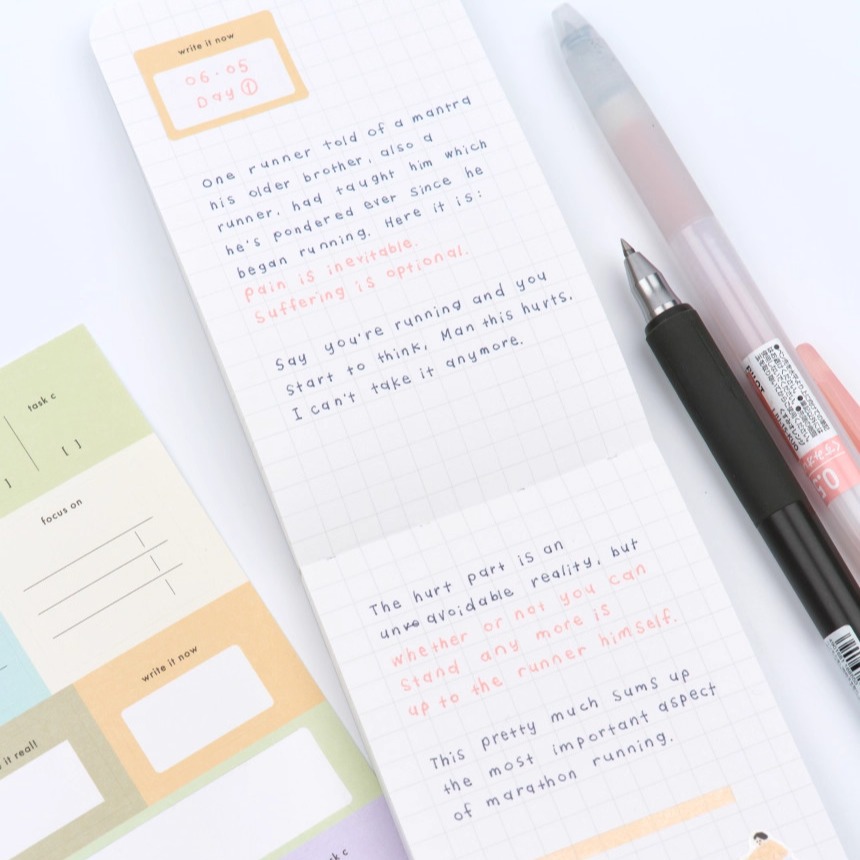 write it now
06.05
Day ①
One runner told of a mantra
his older brother, also a
runner, had taught him which
he's pondered ever since he
began running. Here it is:
Pain is inevitable.
Suffering is optional.
Say you're running and you
start to think, Man this hurts.
I can't take it anymore.
The hurt part is an
unavoidable reality, but
whether or not you can
stand any more is
up to the runner himself.
This pretty much sums up
the most important aspect
of marathon running.
task c
[ ]
focus on
write it now
it real!
k c
PILOT